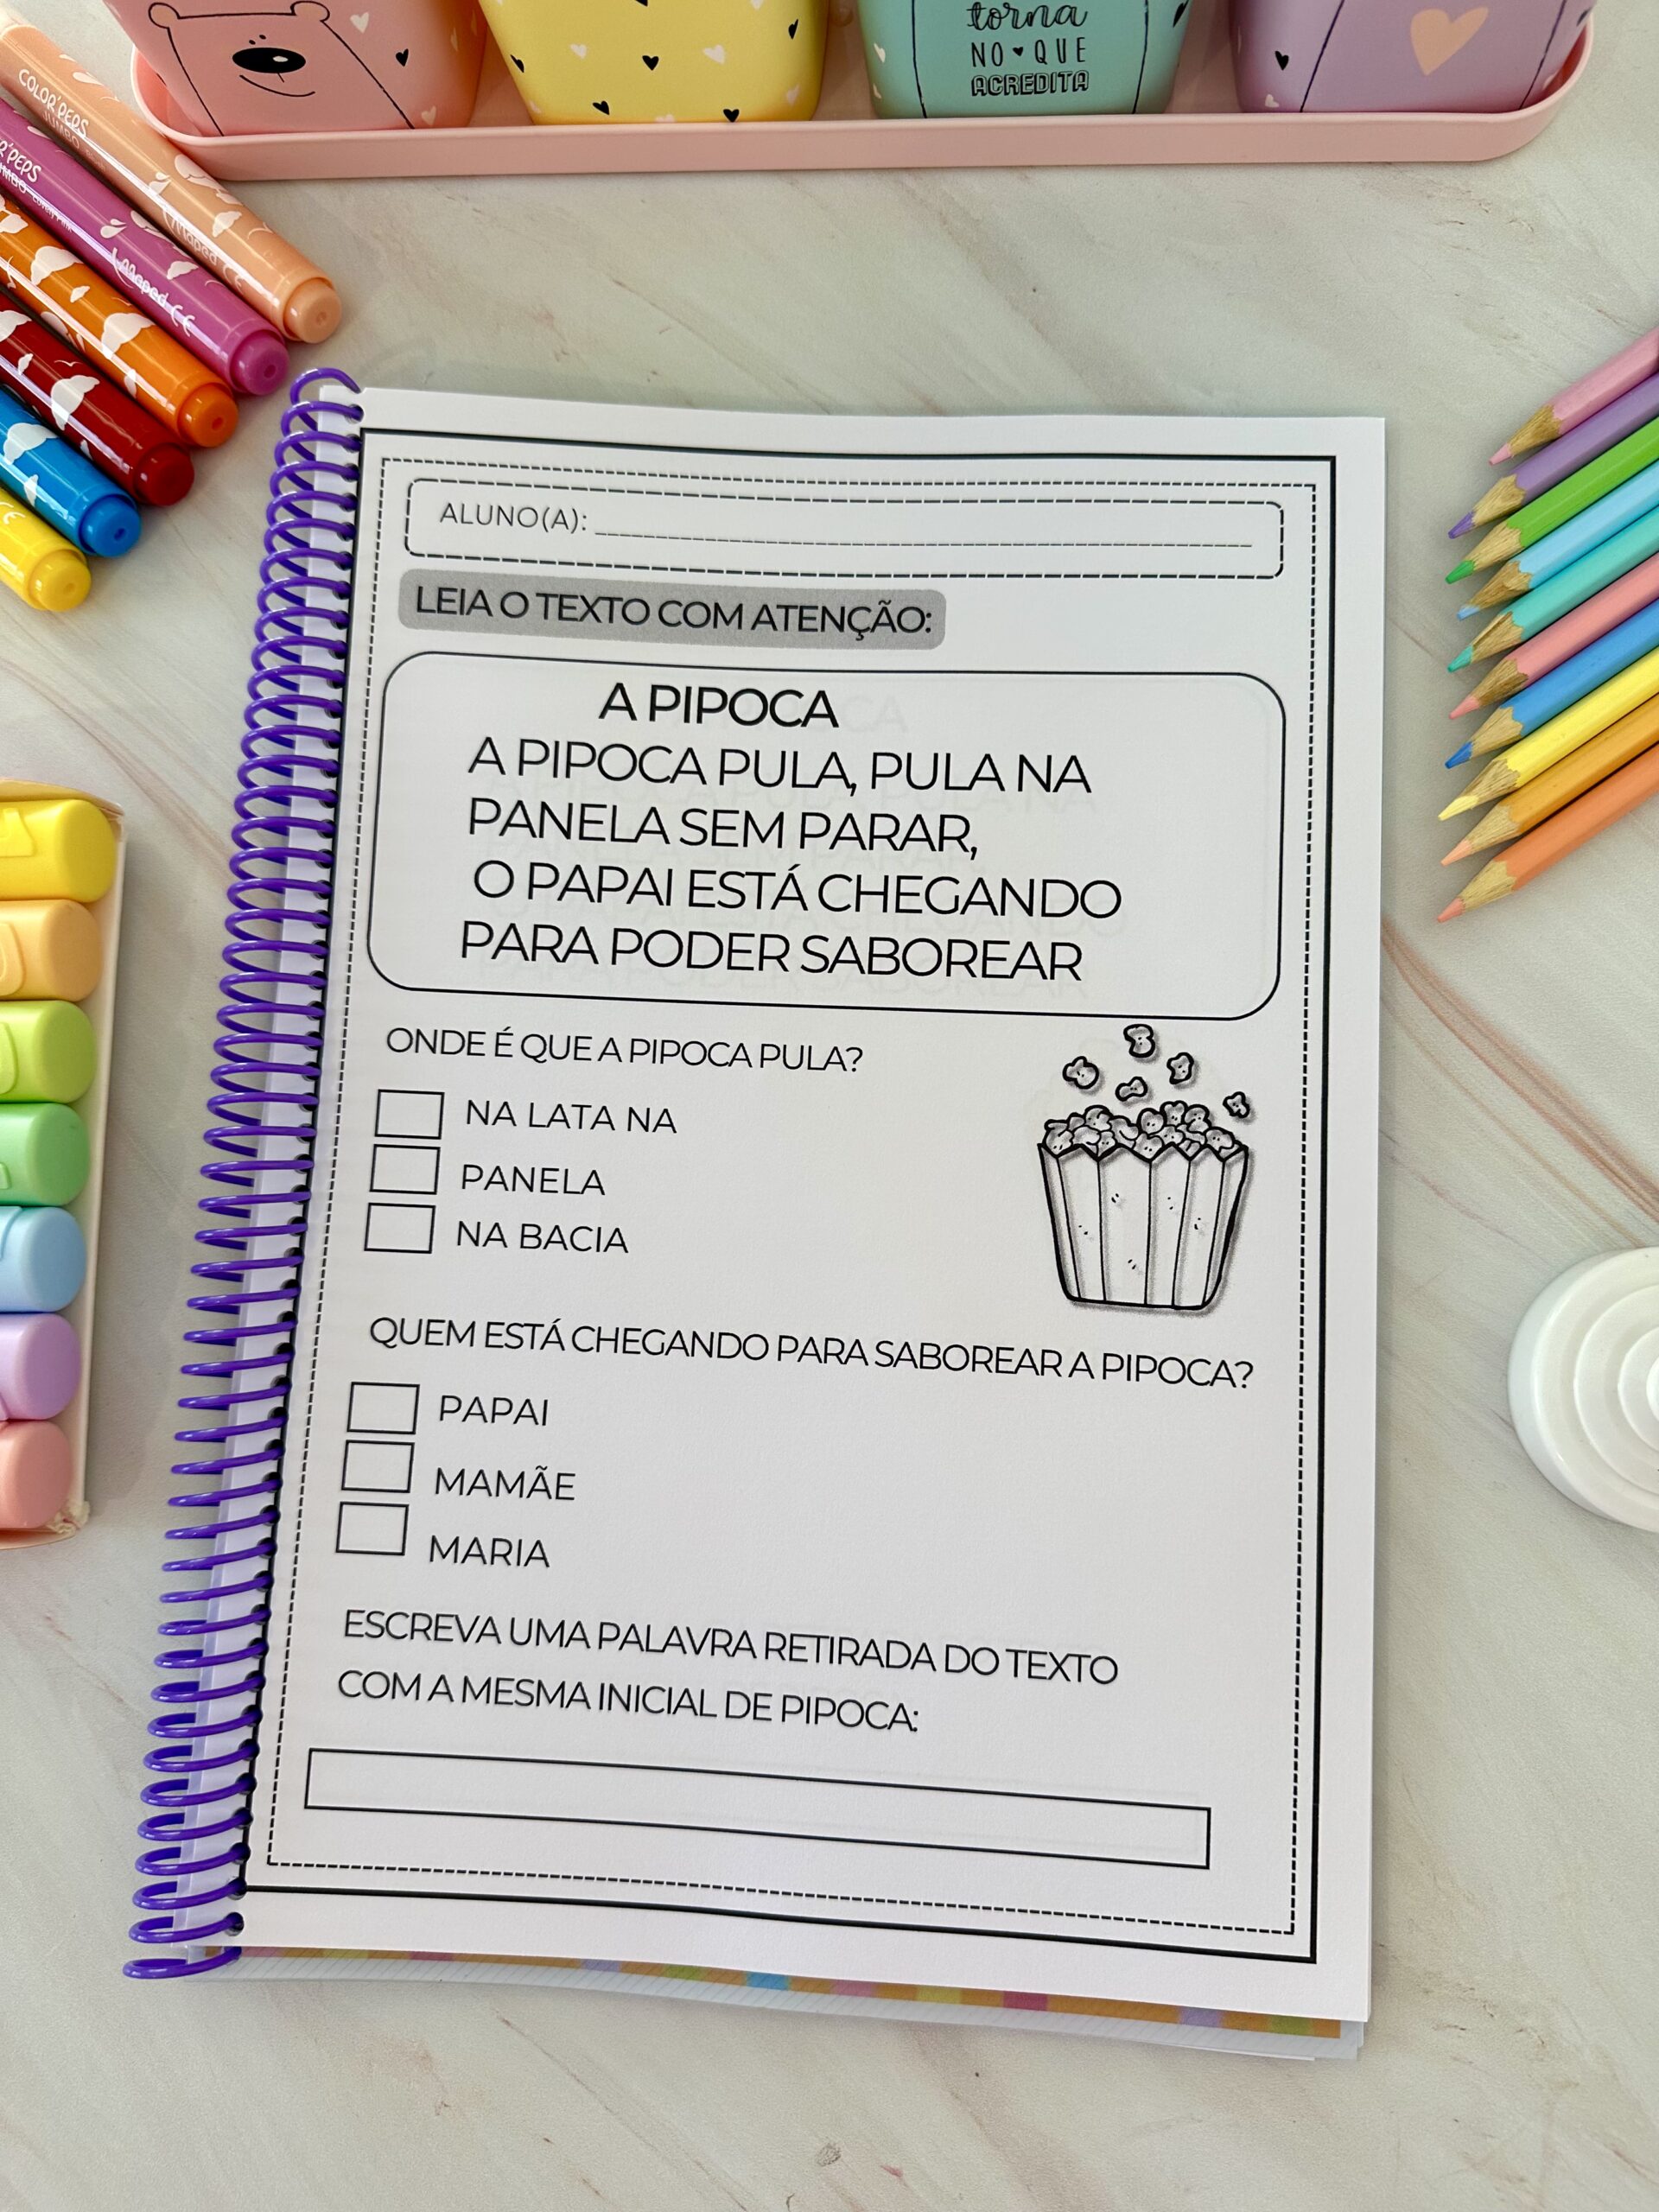 torna
NO QUE
ACREDITA
COLOR'PEPS
JUMBO
Maped CE
R'PEPS
Maped CE
ALUNO(A):
LEIA O TEXTO COM ATENÇÃO:
A PIPOCA
A PIPOCA PULA, PULA NA
PANELA SEM PARAR,
O PAPAI ESTÁ CHEGANDO
PARA PODER SABOREAR
ONDE É QUE A PIPOCA PULA?
NA LATA NA
PANELA
NA BACIA
QUEM ESTÁ CHEGANDO PARA SABOREAR A PIPOCA?
PAPAI
MAMÃE
MARIA
ESCREVA UMA PALAVRA RETIRADA DO TEXTO
COM A MESMA INICIAL DE PIPOCA: